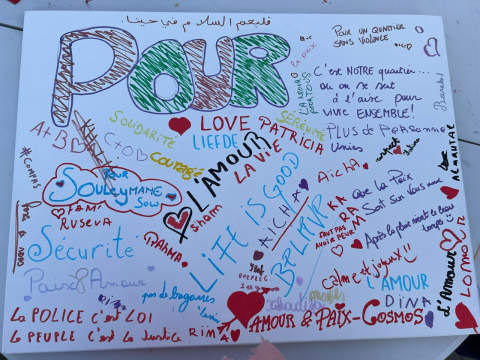 فليعم السلام في حينا.
POUR
Pour un quartier
sans violence
la paix
C'est NOTRE quartier...
où on se sent
à l'aise pour
vivre ENSEMBLE!
SOLIDARITÉ
LOVE PATRICIA
SÉRÉNITÉ
Plus de personne
unies
A+B
C+O
LIEFDE
Courage
L'AMOUR
LA VIE
#COMPAS
POUR
SOULEYMANE
SOW
FAMI
RUSEVA
sham
LIFE IS GOOD
AICHA
AICHA
BELIEVE
KA
RA
que la Paix
Soit Sur Vous
FAUT PAS
AVOIR PEUR
Après la pluie vient le beau
temps :)
Sécurité
Paix & Amour
pas de bagarres
Calme et joyeux!!
L'AMOUR
DINA
d'Amour
LA POLICE C'EST LOI
LE PEUPLE C'EST la Justice RIM
AMOUR & PAIX-COSMOS